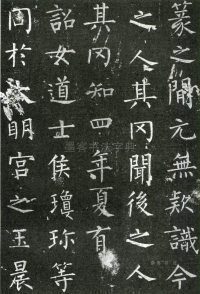 篆之間元無欵識今
之人其罔聞後之人
其罔知四年夏有
詔女道士侯瓊珎等
同於大明宮之玉晨